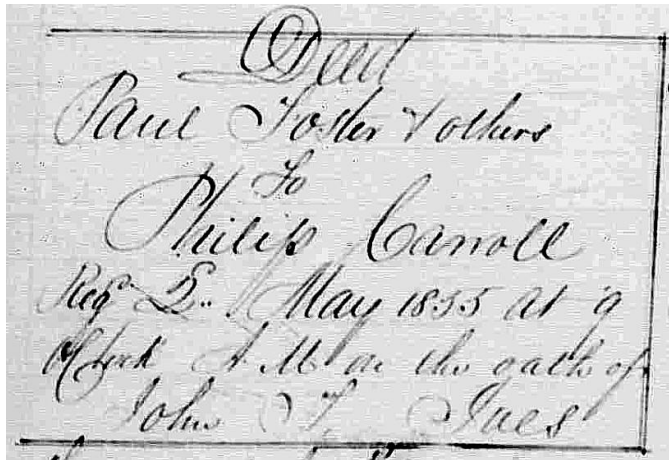 Deed
Paul Foster & others
To
Philip Carroll
Reg d May 1855 at 9
O'Clock A.M on the oath of
John T. Ives